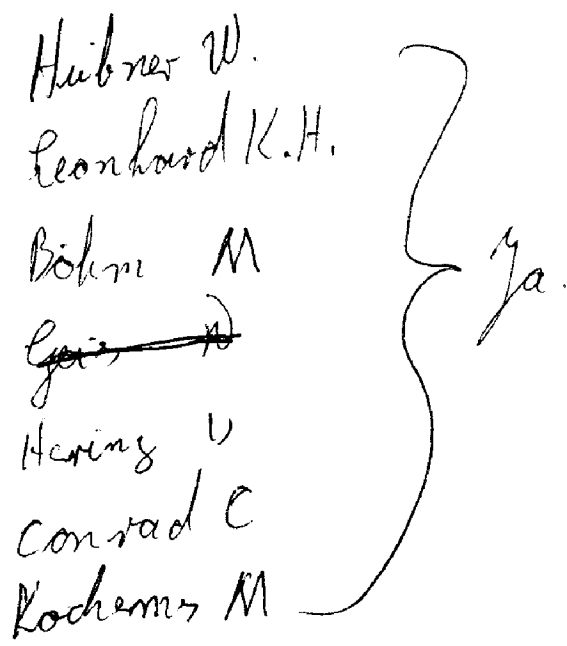 Hübner W.
Leonhard K.H.
Böhm M
Hering U
Conrad C
Kochems M
Ja.